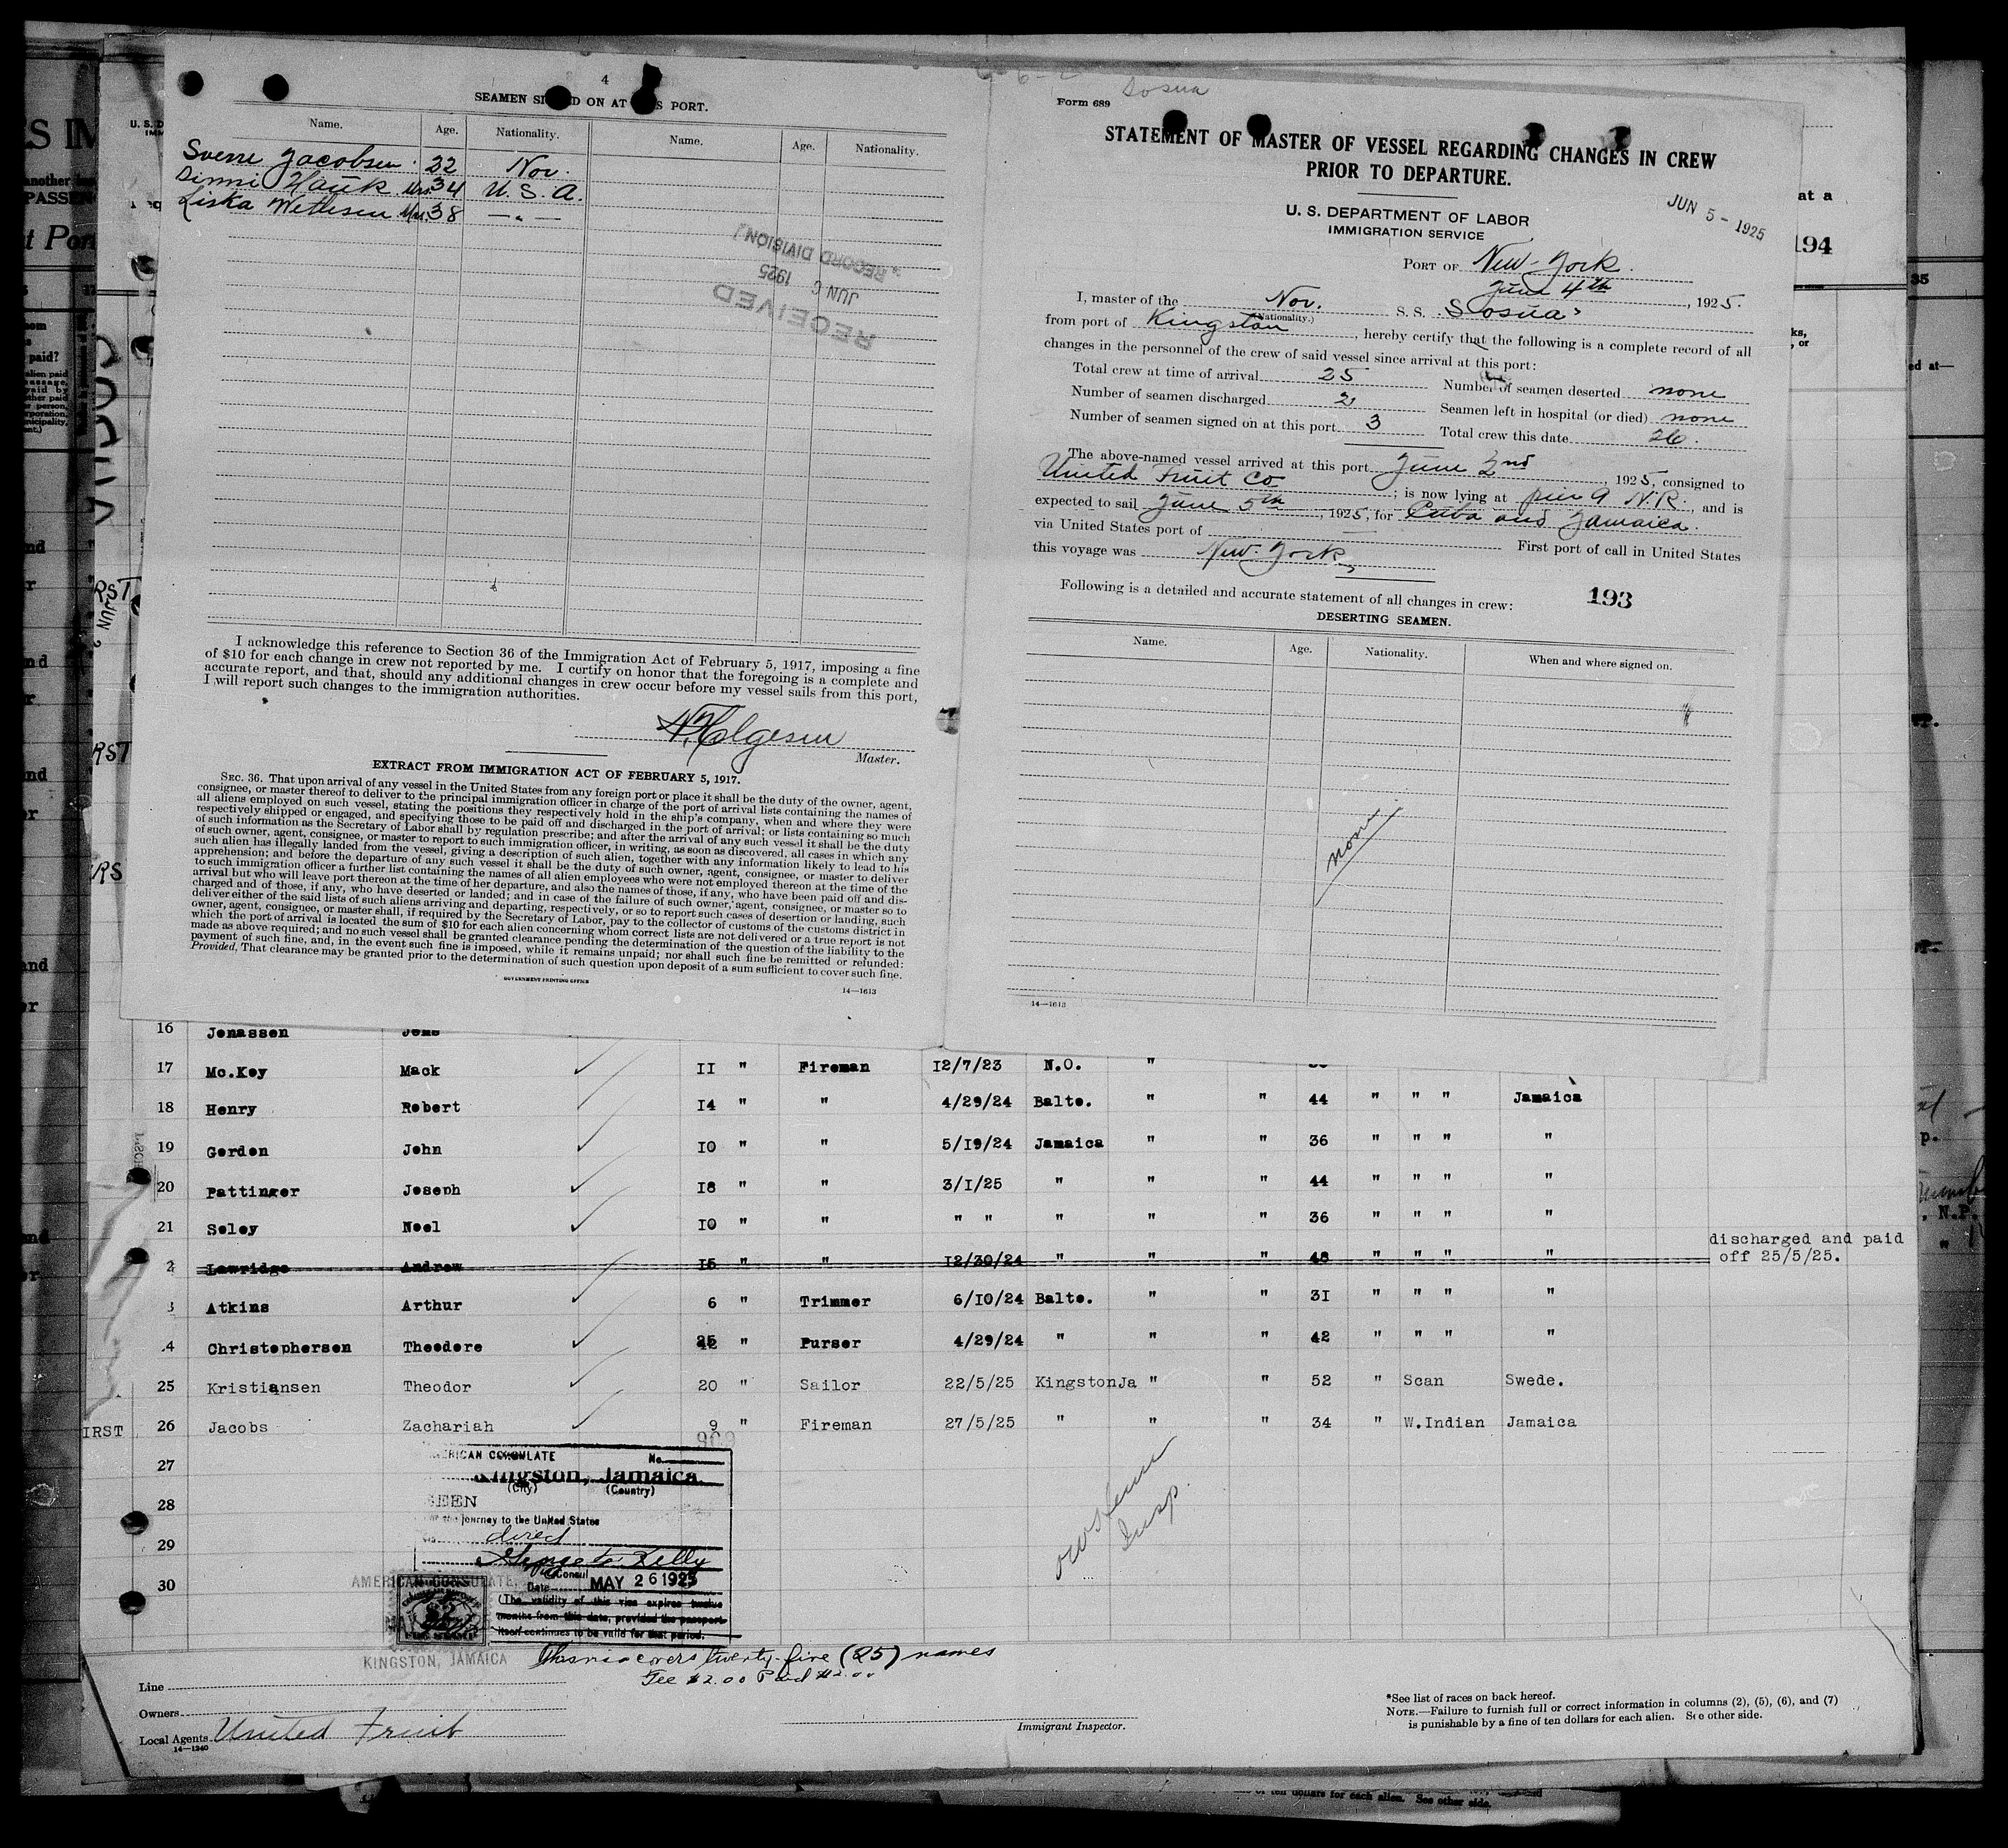 4
SEAMEN SI D ON AT S PORT.
Name. Age. Nationality. Name. Age. Nationality.
Sverre Jacobsen 22 Nov.
Dinni Hauk Mrs. 34 U. S. A.
Liska Wethesen Mrs. 38 — " —
RECEIVED
JUN 6 1925
RECORD DIVISION
I acknowledge this reference to Section 36 of the Immigration Act of February 5, 1917, imposing a fine
of $10 for each change in crew not reported by me. I certify on honor that the foregoing is a complete and
accurate report, and that, should any additional changes in crew occur before my vessel sails from this port,
I will report such changes to the immigration authorities.
N. Holgesen
Master.
EXTRACT FROM IMMIGRATION ACT OF FEBRUARY 5, 1917.
SEC. 36. That upon arrival of any vessel in the United States from any foreign port or place it shall be the duty of the owner, agent,
consignee, or master thereof to deliver to the principal immigration officer in charge of the port of arrival lists containing the names of
all aliens employed on such vessel, stating the positions they respectively hold in the ship's company, when and where they were
respectively shipped or engaged, and specifying those to be paid off and discharged in the port of arrival; or lists containing so much
of such information as the Secretary of Labor shall by regulation prescribe; and after the arrival of any such vessel it shall be the duty
of such owner, agent, consignee, or master to report to such immigration officer, in writing, as soon as discovered, all cases in which any
such alien has illegally landed from the vessel, giving a description of such alien, together with any information likely to lead to his
apprehension; and before the departure of any such vessel it shall be the duty of such owner, agent, consignee, or master to deliver
to such immigration officer a further list containing the names of all alien employees who were not employed thereon at the time of the
arrival but who will leave port thereon at the time of her departure, and also the names of those, if any, who have been paid off and dis-
charged and of those, if any, who have deserted or landed; and in case of the failure of such owner, agent, consignee, or master so to
deliver either of the said lists of such aliens arriving and departing, respectively, or so to report such cases of desertion or landing, such
owner, agent, consignee, or master shall, if required by the Secretary of Labor, pay to the collector of customs of the customs district in
which the port of arrival is located the sum of $10 for each alien concerning whom correct lists are not delivered or a true report is not
made as above required; and no such vessel shall be granted clearance pending the determination of the question of the liability to the
payment of such fine, and, in the event such fine is imposed, while it remains unpaid; nor shall such fine be remitted or refunded:
Provided, That clearance may be granted prior to the determination of such question upon deposit of a sum sufficient to cover such fine.
GOVERNMENT PRINTING OFFICE
14—1613
Sosua
Form 689
STATEMENT OF MASTER OF VESSEL REGARDING CHANGES IN CREW
PRIOR TO DEPARTURE.
U. S. DEPARTMENT OF LABOR
IMMIGRATION SERVICE
JUN 5 - 1925
PORT OF New-York.
June 4th, 1925.
I, master of the Nov. S. S. Sosua
(Nationality.)
from port of Kingston, hereby certify that the following is a complete record of all
changes in the personnel of the crew of said vessel since arrival at this port:
Total crew at time of arrival 25 Number of seamen deserted none
Number of seamen discharged 2 Seamen left in hospital (or died) none
Number of seamen signed on at this port 3 Total crew this date 26.
The above-named vessel arrived at this port June 2nd, 1925, consigned to
United Fruit Co; is now lying at pier 9 N.R., and is
expected to sail June 5th, 1925, for Cuba and Jamaica.
via United States port of — First port of call in United States
this voyage was New-York
Following is a detailed and accurate statement of all changes in crew: 193
DESERTING SEAMEN.
Name. Age. Nationality. When and where signed on.
none
14—1613
at a
194
16 Jonassen Jens
17 Mc.Key Mack 11 " Fireman 12/7/23 N.O. "
18 Henry Robert 14 " " 4/29/24 Balto. " " 44 " " " Jamaica
19 Gordon John 10 " " 5/19/24 Jamaica " " 36 " " " "
20 Pattinger Joseph 18 " " 3/1/25 " " " 44 " " " "
21 Seley Noel 10 " " " " " " " 36 " " " "
2 Lawridge Andrew 15 " " 12/30/24 " " " 48 " " " " discharged and paid
off 25/5/25.
3 Atkins Arthur 6 " Trimmer 6/10/24 Balto. " " 31 " " " "
4 Christophersen Theodore 25 " Purser 4/29/24 " " " 42 " " " "
25 Kristiansen Theodor 20 " Sailor 22/5/25 KingstonJa " " 52 " Scan Swede.
IRST 26 Jacobs Zachariah 9 " Fireman 27/5/25 " " " 34 " W.Indian Jamaica
27
28
29
30
AMERICAN CONSULATE No.
Kingston, Jamaica
(City) (Country)
SEEN
journey to the United States
direct
Consul
Date MAY 26 1925
(The validity of this visa expires twelve
months from this date, provided the passport
itself continues to be valid for that period.
AMERICAN CONSULATE,
KINGSTON, JAMAICA
Insp.
This visa covers twenty-five (25) names
Fee $2.00 Paid $2.00
Line
Owners
Local Agents United Fruit
14—1240
Immigrant Inspector.
*See list of races on back hereof.
NOTE.—Failure to furnish full or correct information in columns (2), (5), (6), and (7)
is punishable by a fine of ten dollars for each alien. See other side.
of ten dollars for each alien. See other side.